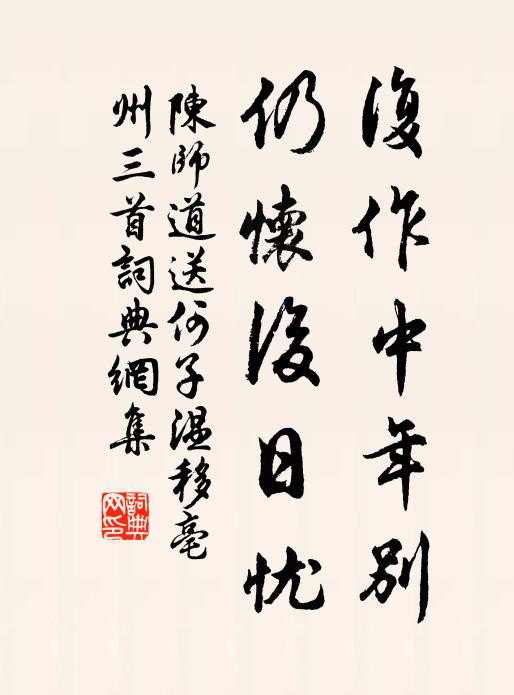 復作中年別
仍懷後日忧
陳師道送何子温移亳
州三首詞典網集
詞典网印